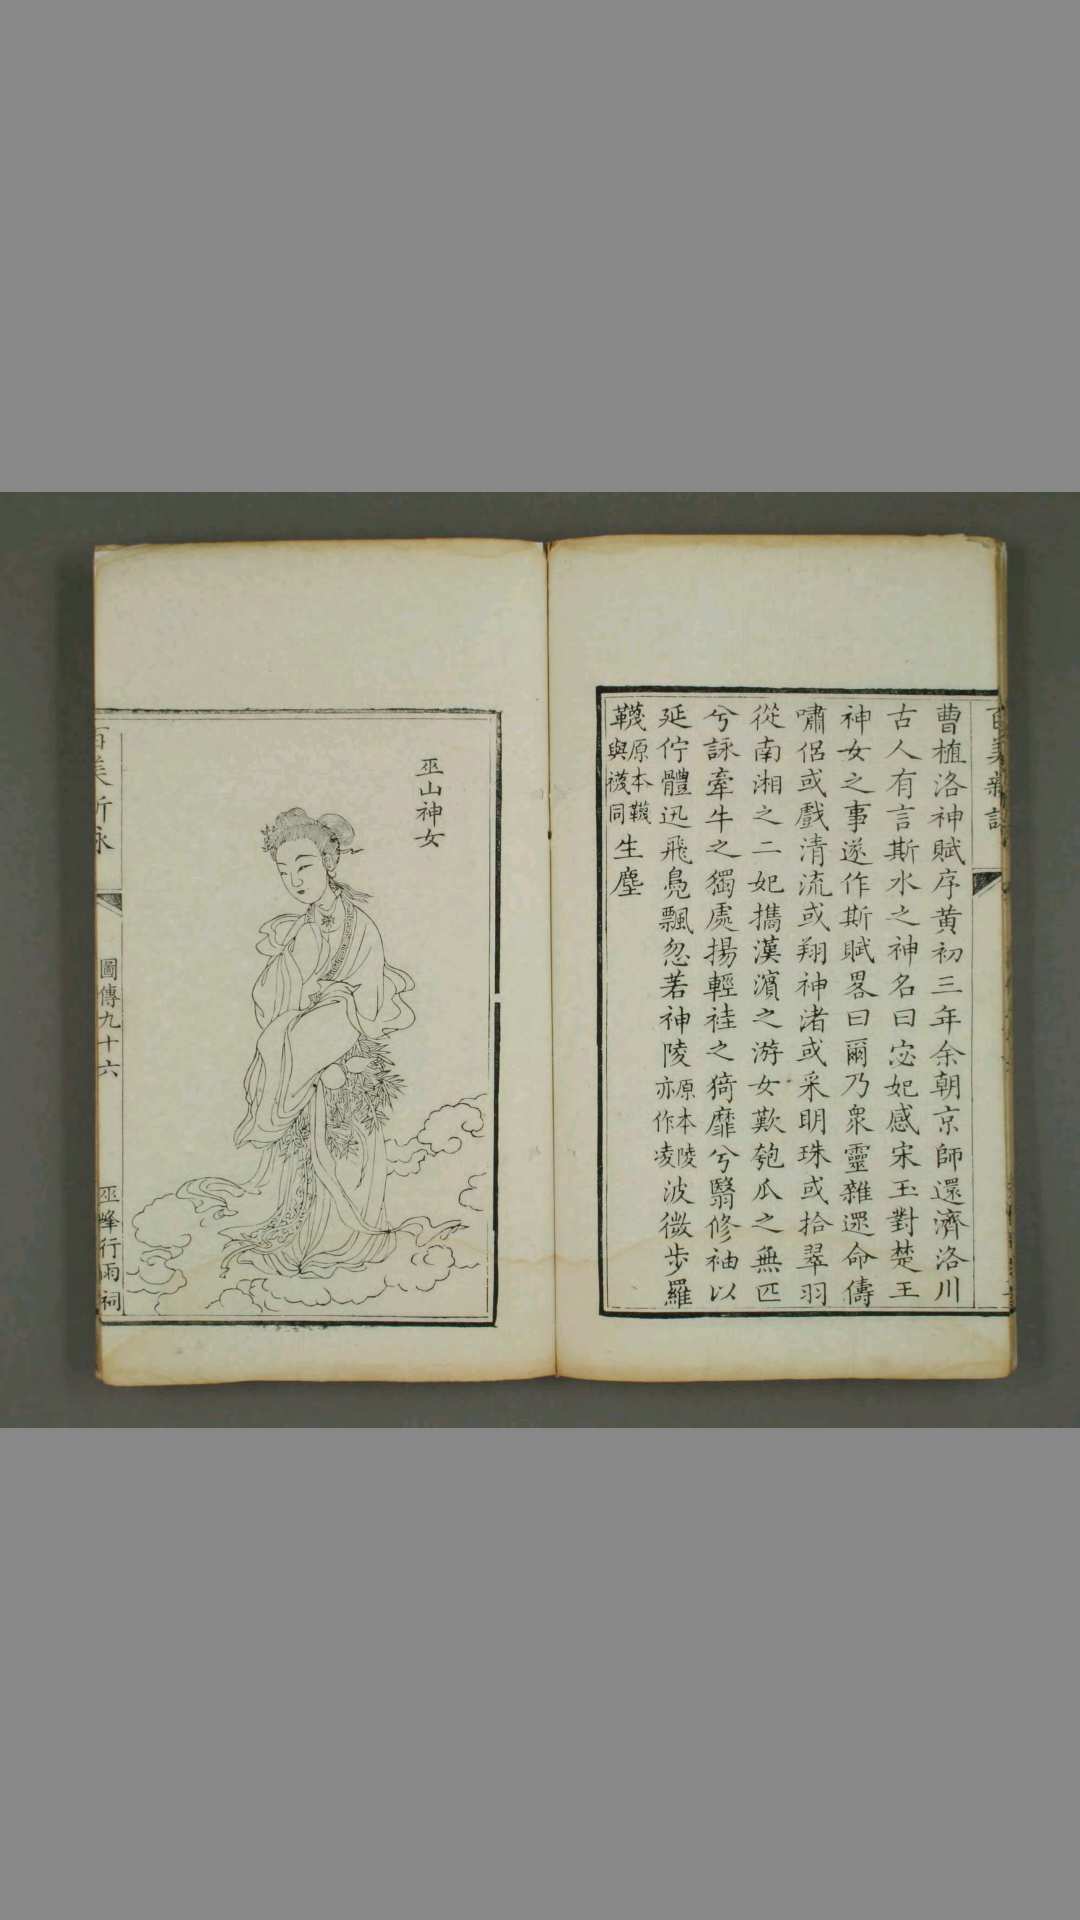 曹植洛神賦序黄初三年余朝京師還濟洛川
古人有言斯水之神名曰宓妃感宋玉對楚王
神女之事遂作斯賦畧曰爾乃衆靈雜遝命儔
嘯侶或戲清流或翔神渚或采明珠或拾翠羽
從南湘之二妃攜漢濱之游女歎匏瓜之無匹
兮詠牽牛之獨處揚輕袿之猗靡兮翳修袖以
延佇體迅飛鳧飄忽若神陵原本陵亦作凌波微步羅
韈原本韈與襪同生塵
巫山神女
百美新詠
圖傳九十六
巫峰行雨祠